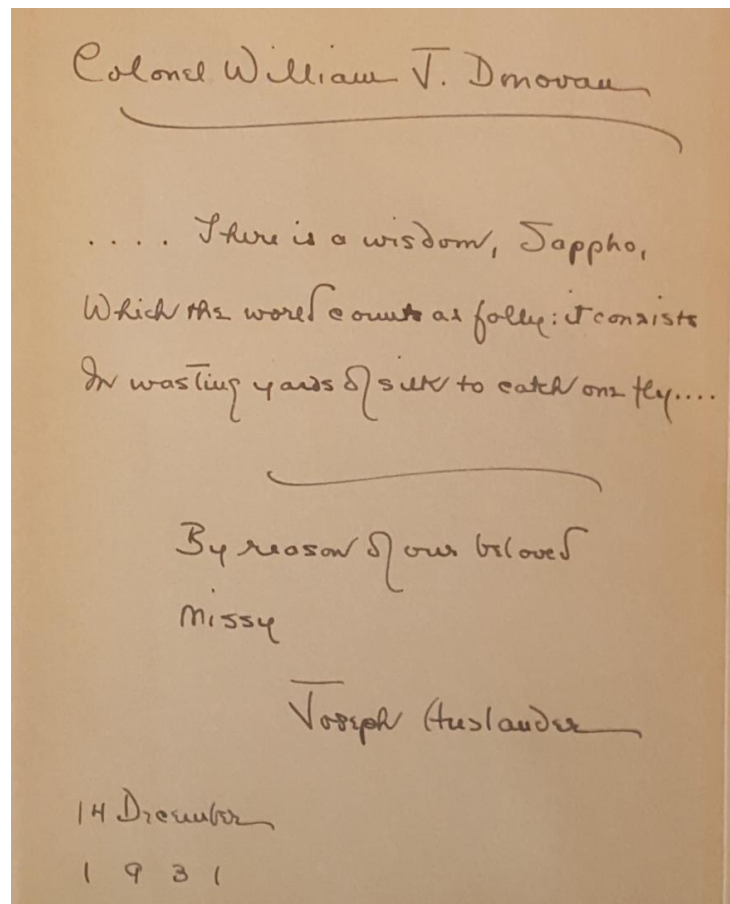 Colonel William J. Donovan
.... There is a wisdom, Sappho,
Which the world counts as folly: it consists
In wasting yards of silk to catch one fly....
By reason of our beloved
Missy
Joseph Auslander
14 December
1931